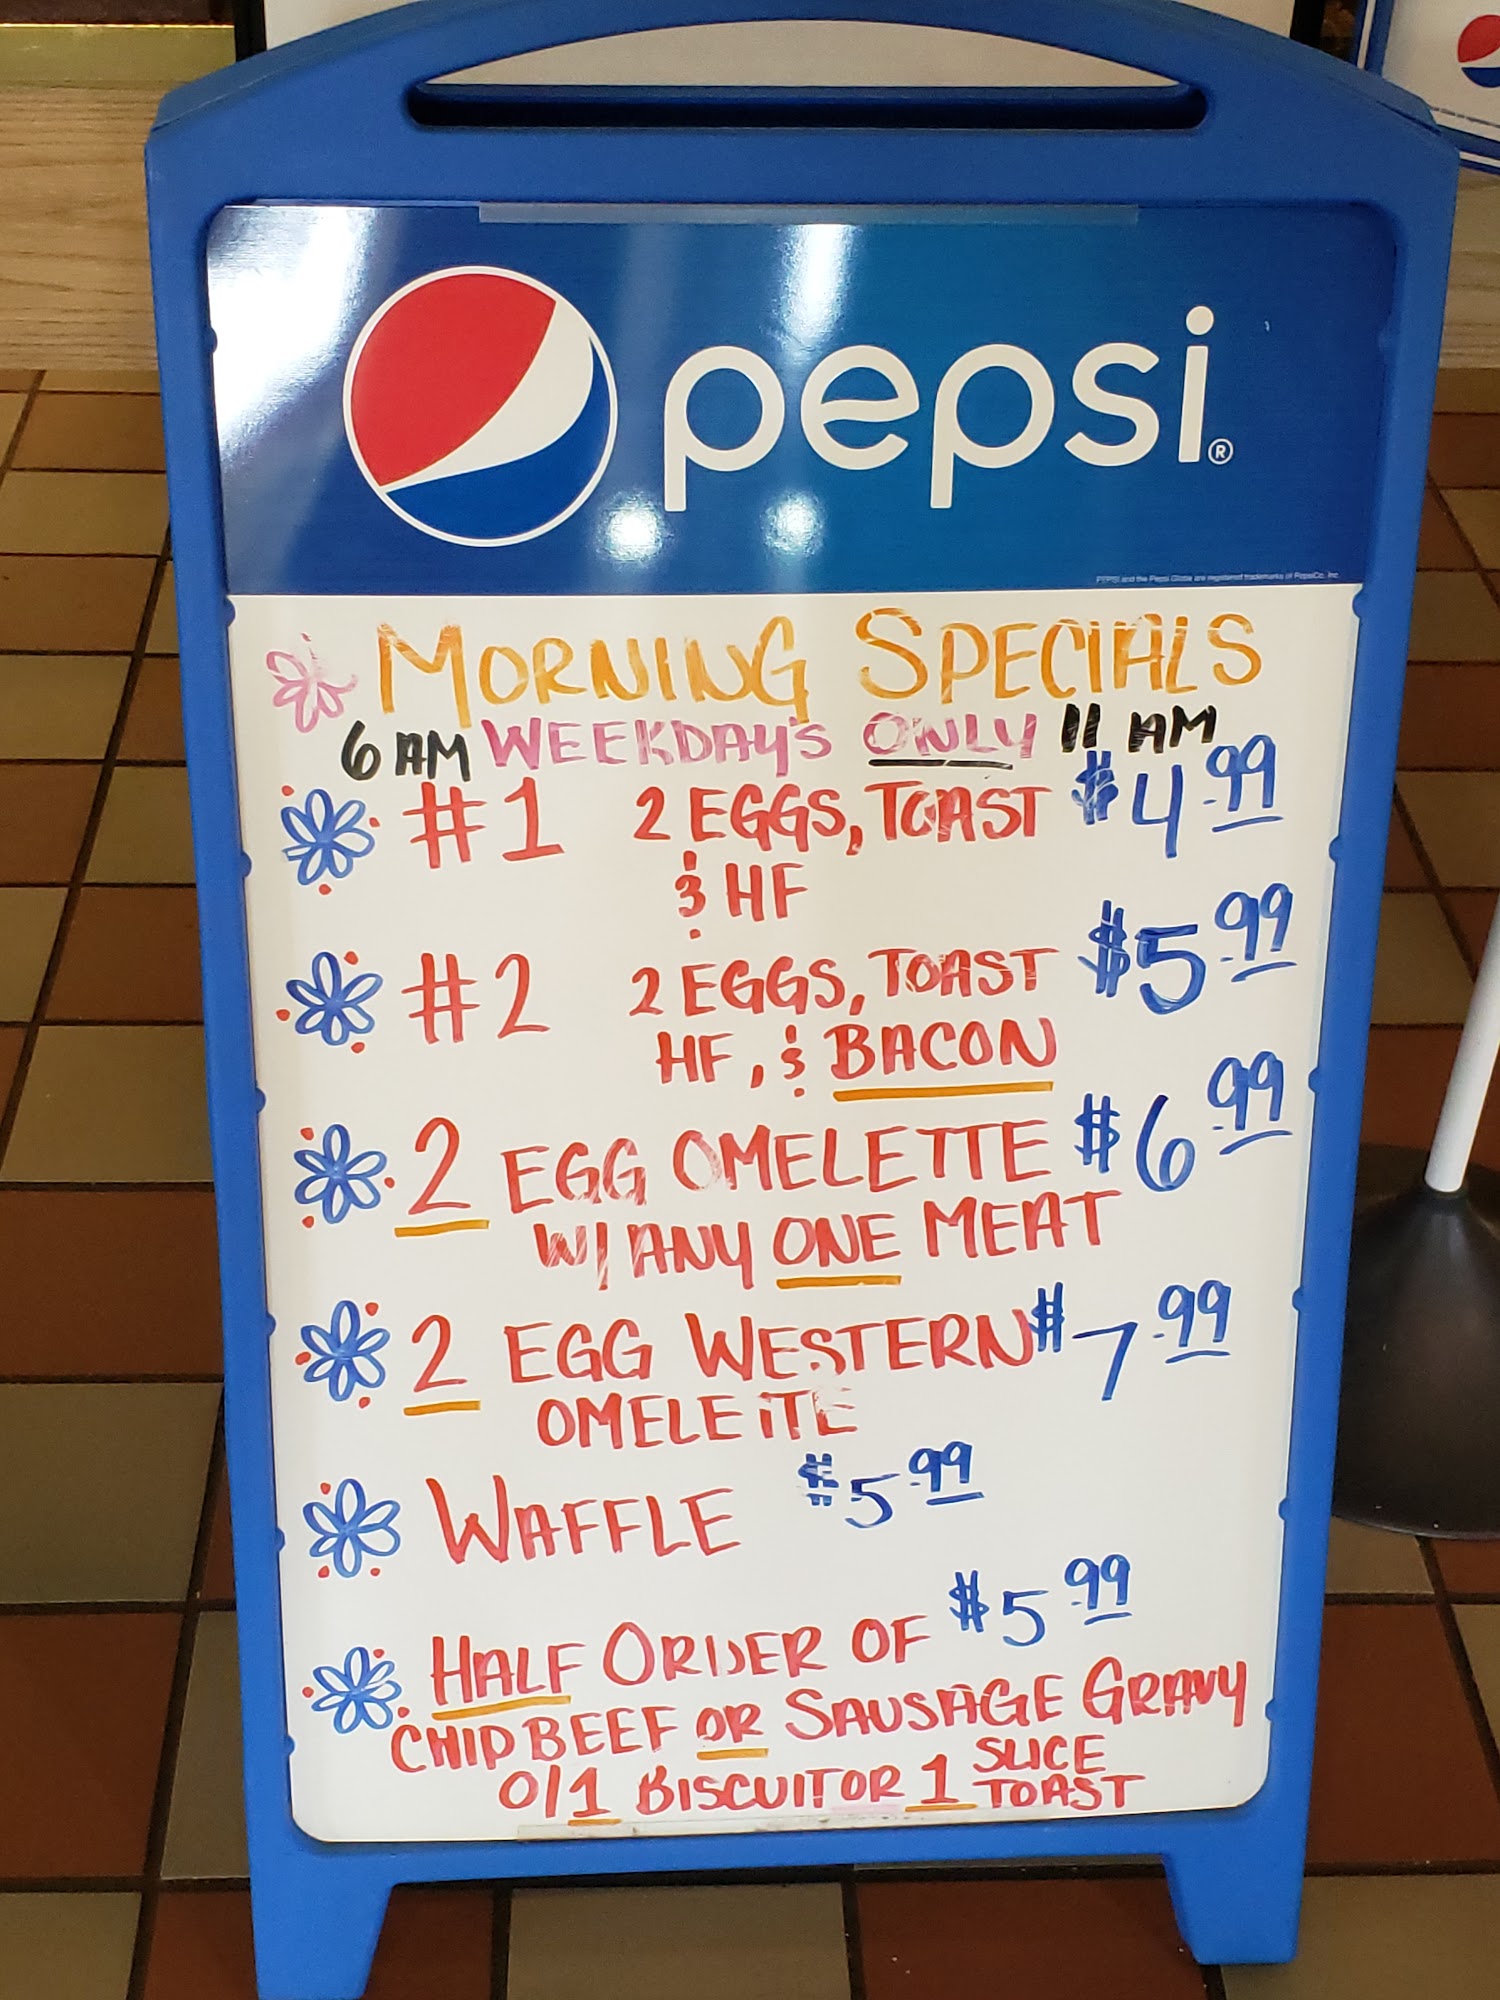 pepsi®
PEPSI and the Pepsi Globe are registered trademarks of PepsiCo, Inc.
MORNING SPECIALS
6 AM WEEKDAY'S ONLY 11 AM
#1 2 EGGS, TOAST $4.99
& HF
#2 2 EGGS, TOAST $5.99
HF, & BACON
2 EGG OMELETTE $6.99
W/ ANY ONE MEAT
2 EGG WESTERN $7.99
OMELETTE
WAFFLE $5.99
HALF ORDER OF $5.99
CHIP BEEF OR SAUSAGE GRAVY
O/1 BISCUIT OR 1 SLICE
TOAST